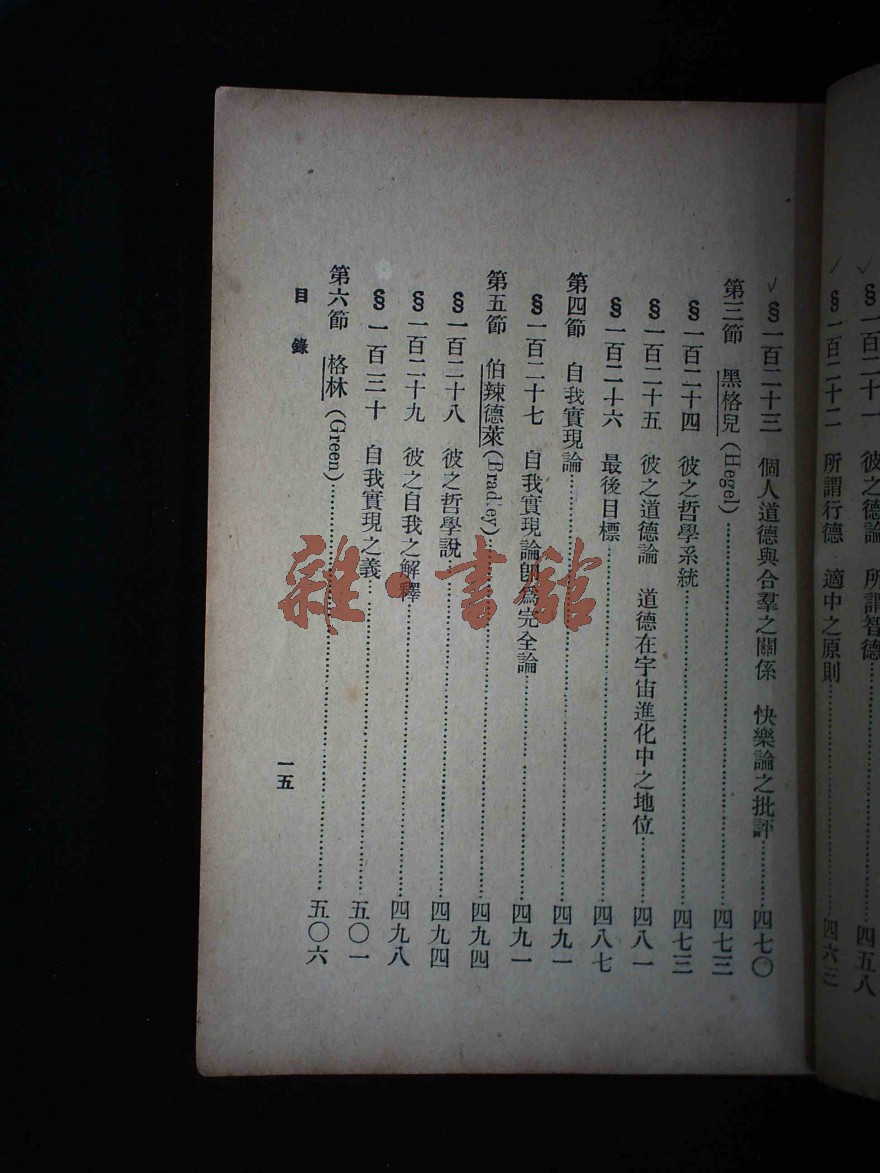 §一百二十一　彼之德論　所謂智德………四五八
§一百二十二　所謂行德　適中之原則………四六三
§一百二十三　個人道德與合羣之關係　快樂論之批評………四七〇
第三節　黑格兒(Hegel)………四七三
§一百二十四　彼之哲學系統………四七三
§一百二十五　彼之道德論　道德在宇宙進化中之地位………四八一
§一百二十六　最後目標………四八七
第四節　自我實現論………四九一
§一百二十七　自我實現論卽爲完全論………四九一
第五節　伯辣德萊(Bradley)………四九四
§一百二十八　彼之哲學說………四九四
§一百二十九　彼之自我之解釋………四九八
§一百三十　自我實現之義………五〇一
第六節　格林(Green)………五〇六
目錄
一五
雜·書館